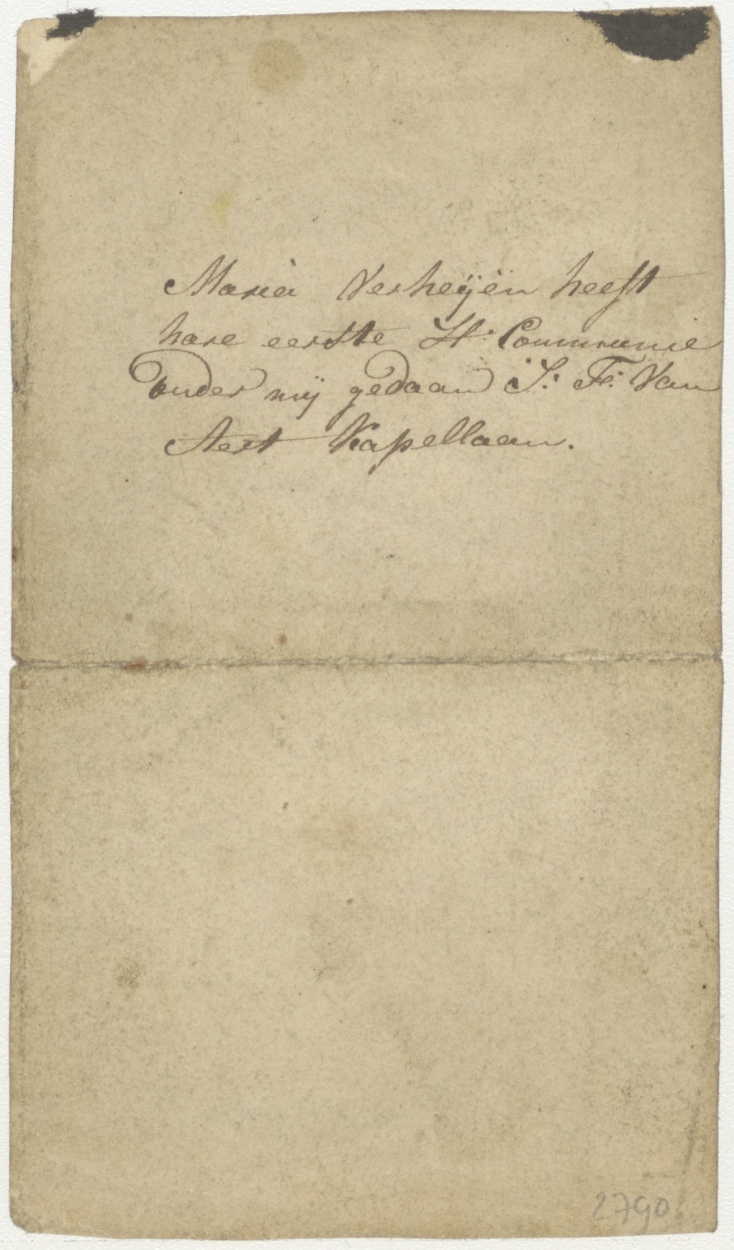 Maria Verheÿen heeft
hare eerste H: Communie
onder mij gedaan J: F: Van
Aert Kapellaan.
2790